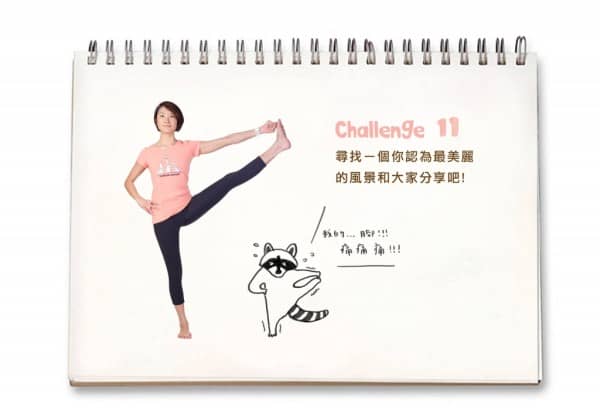 Challenge 11
尋找一個你認為最美麗
的風景和大家分享吧!
我的... 腳!!!
痛痛痛!!!